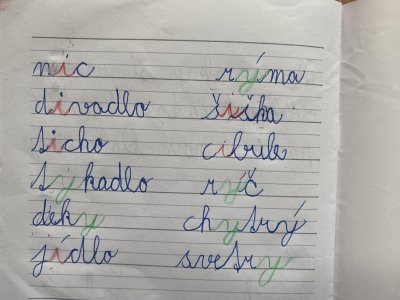 nic rýma
divadlo šiška
ticho cibule
tykadlo rýč
deky chytrý
jídlo svetry